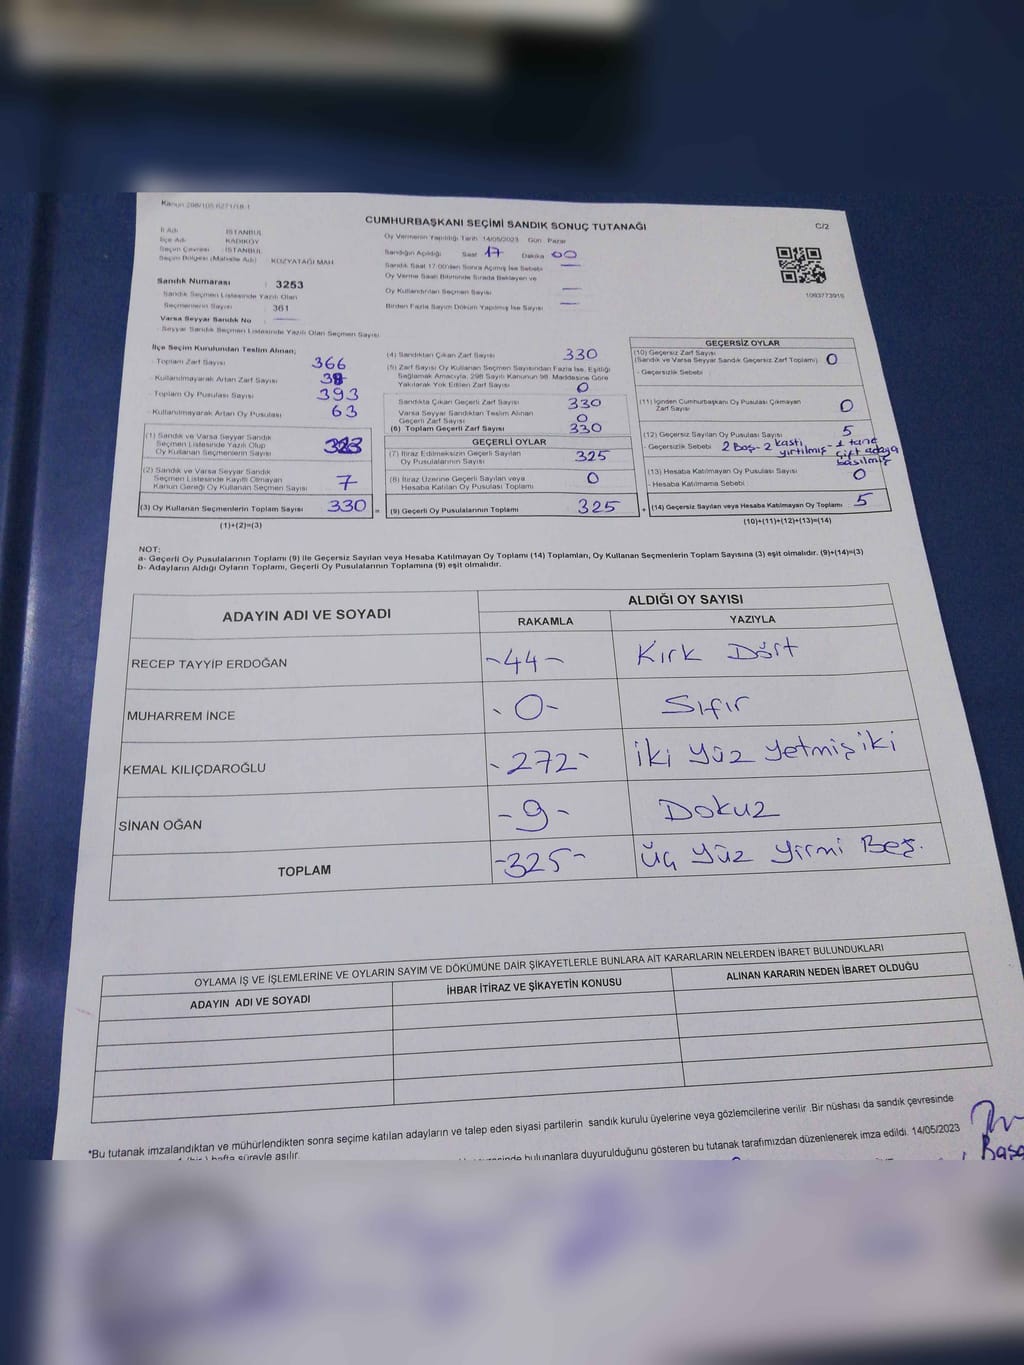 Kanun 298/105 6271/18-1
CUMHURBAŞKANI SEÇİMİ SANDIK SONUÇ TUTANAĞI
C/2
İl Adı : İSTANBUL
İlçe Adı : KADIKÖY
Seçim Çevresi : İSTANBUL
Seçim Bölgesi (Mahalle Adı) : KOZYATAĞI MAH.
Sandık Numarası : 3253
Sandık Seçmen Listesinde Yazılı Olan
Seçmenlerin Sayısı : 361
Varsa Seyyar Sandık No :
Seyyar Sandık Seçmen Listesinde Yazılı Olan Seçmen Sayısı
Oy Vermenin Yapıldığı Tarih 14/05/2023 Gün Pazar
Sandığın Açıldığı Saat 17 Dakika 00
Sandık Saat 17:00'den Sonra Açılmış İse Sebebi —
Oy Verme Saati Bitiminde Sırada Bekleyen ve
Oy Kullandırılan Seçmen Sayısı —
Birden Fazla Sayım Döküm Yapılmış İse Sayısı —
1093773915
İlçe Seçim Kurulundan Teslim Alınan;
- Toplam Zarf Sayısı 366
- Kullanılmayarak Artan Zarf Sayısı
- Toplam Oy Pusulası Sayısı 393
- Kullanılmayarak Artan Oy Pusulası 63
(1) Sandık ve Varsa Seyyar Sandık
Seçmen Listesinde Yazılı Olup
Oy Kullanan Seçmenlerin Sayısı 323
(2) Sandık ve Varsa Seyyar Sandık
Seçmen Listesinde Kayıtlı Olmayan
Kanun Gereği Oy Kullanan Seçmen Sayısı 7
(3) Oy Kullanan Seçmenlerin Toplam Sayısı 330 =
(1)+(2)=(3)
(4) Sandıktan Çıkan Zarf Sayısı 330
(5) Zarf Sayısı Oy Kullanan Seçmen Sayısından Fazla İse, Eşitliği
Sağlamak Amacıyla, 298 Sayılı Kanunun 98. Maddesine Göre
Yakılarak Yok Edilen Zarf Sayısı 0
Sandıkta Çıkan Geçerli Zarf Sayısı 330
Varsa Seyyar Sandıktan Teslim Alınan
Geçerli Zarf Sayısı 0
(6) Toplam Geçerli Zarf Sayısı 330
GEÇERLİ OYLAR
(7) İtiraz Edilmeksizin Geçerli Sayılan
Oy Pusulalarının Toplamı 325
(8) İtiraz Üzerine Geçerli Sayılan veya
Hesaba Katılan Oy Pusulası Toplamı 0
(9) Geçerli Oy Pusulalarının Toplamı 325 +
GEÇERSİZ OYLAR
(10) Geçersiz Zarf Sayısı
(Sandık ve Varsa Seyyar Sandık Geçersiz Zarf Toplamı) 0
- Geçersizlik Sebebi :
(11) İçinden Cumhurbaşkanı Oy Pusulası Çıkmayan
Zarf Sayısı 0
(12) Geçersiz Sayılan Oy Pusulası Sayısı 5
- Geçersizlik Sebebi : 2 Boş - 2 kastı yırtılmış - 1 tane çift adaya basılmış
(13) Hesaba Katılmayan Oy Pusulası Sayısı 0
- Hesaba Katılmama Sebebi :
(14) Geçersiz Sayılan veya Hesaba Katılmayan Oy Toplamı 5
(10)+(11)+(12)+(13)=(14)
NOT:
a- Geçerli Oy Pusulalarının Toplamı (9) ile Geçersiz Sayılan veya Hesaba Katılmayan Oy Toplamı (14) Toplamları, Oy Kullanan Seçmenlerin Toplam Sayısına (3) eşit olmalıdır. (9)+(14)=(3)
b- Adayların Aldığı Oyların Toplamı, Geçerli Oy Pusulalarının Toplamına (9) eşit olmalıdır.
ADAYIN ADI VE SOYADI
ALDIĞI OY SAYISI
RAKAMLA YAZIYLA
RECEP TAYYİP ERDOĞAN -44- Kırk Dört
MUHARREM İNCE -0- Sıfır
KEMAL KILIÇDAROĞLU -272- iki yüz yetmiş iki
SİNAN OĞAN -9- Dokuz
TOPLAM -325- Üç yüz yirmi Beş.
OYLAMA İŞ VE İŞLEMLERİNE VE OYLARIN SAYIM VE DÖKÜMÜNE DAİR ŞİKAYETLERLE BUNLARA AİT KARARLARIN NELERDEN İBARET BULUNDUKLARI
ADAYIN ADI VE SOYADI İHBAR İTİRAZ VE ŞİKAYETİN KONUSU ALINAN KARARIN NEDEN İBARET OLDUĞU
*Bu tutanak imzalandıktan ve mühürlendikten sonra seçime katılan adayların ve talep eden siyasi partilerin sandık kurulu üyelerine veya gözlemcilerine verilir. Bir nüshası da sandık çevresinde
hafta süreyle asılır.
bulunanlara duyurulduğunu gösteren bu tutanak tarafımızdan düzenlenerek imza edildi. 14/05/2023